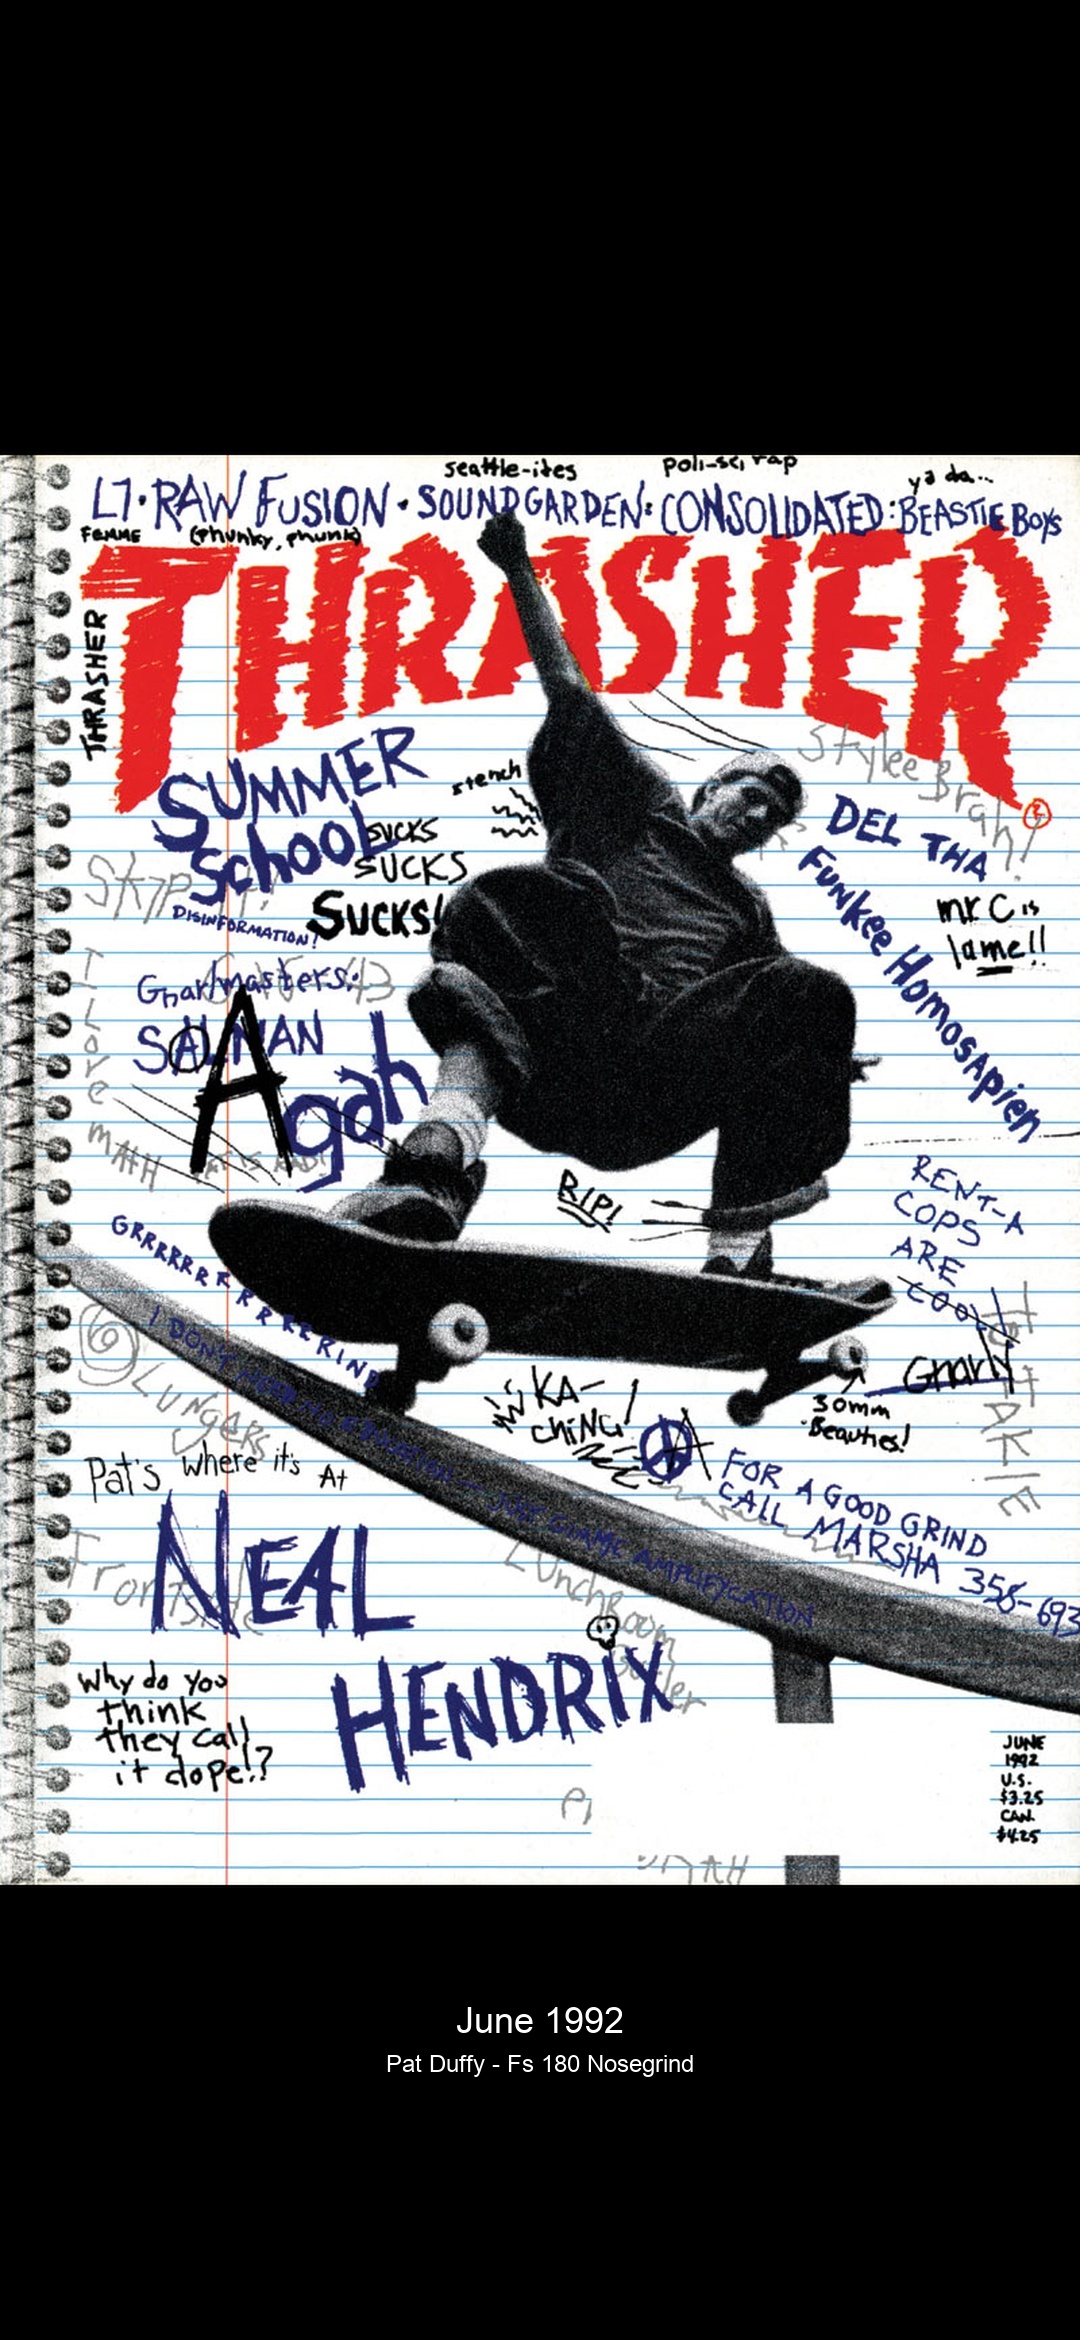 seattle-ites
poli-sci rap
ya da...
L7 · RAW FUSION · SOUNDGARDEN : CONSOLIDATED : BEASTIE BOYS
FEMME
(phunky, phunk)
THRASHER
THRASHER
SUMMER
School
SUCKS
SUCKS
SUCKS!
DISINFORMATION!
stench
Stylee Brah!
DEL THA
FUNKee HomosApien
mr C is
lame!!
Gnarlmasters:
SALMAN
Agah
I Love
MATH
RIP!
RENT-A
COPS
ARE
COOL
Gnarly
GRRRRRRRRRRRRIND
I DON'T NEED NO EDUCATION — JUST GIMME AMPLIFYCATION
LUNGERS
KA-
CHING!
30mm
Beauties!
FOR A GOOD GRIND
CALL MARSHA 358-693
Pat's where it's At
NEAL
HENDRIX
Frontside
Lunchroom
Why do you
think
they call
it dope!?
JUNE
1992
U.S.
$3.25
CAN.
$4.25
June 1992
Pat Duffy - Fs 180 Nosegrind